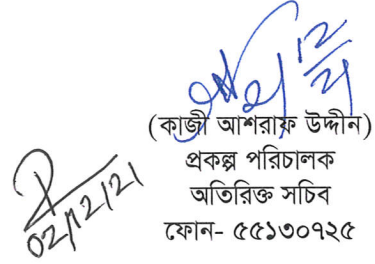 (কাজী আশরাফ উদ্দীন)
প্রকল্প পরিচালক
অতিরিক্ত সচিব
ফোন- ৫৫১৩০৭২৫
02/12/21